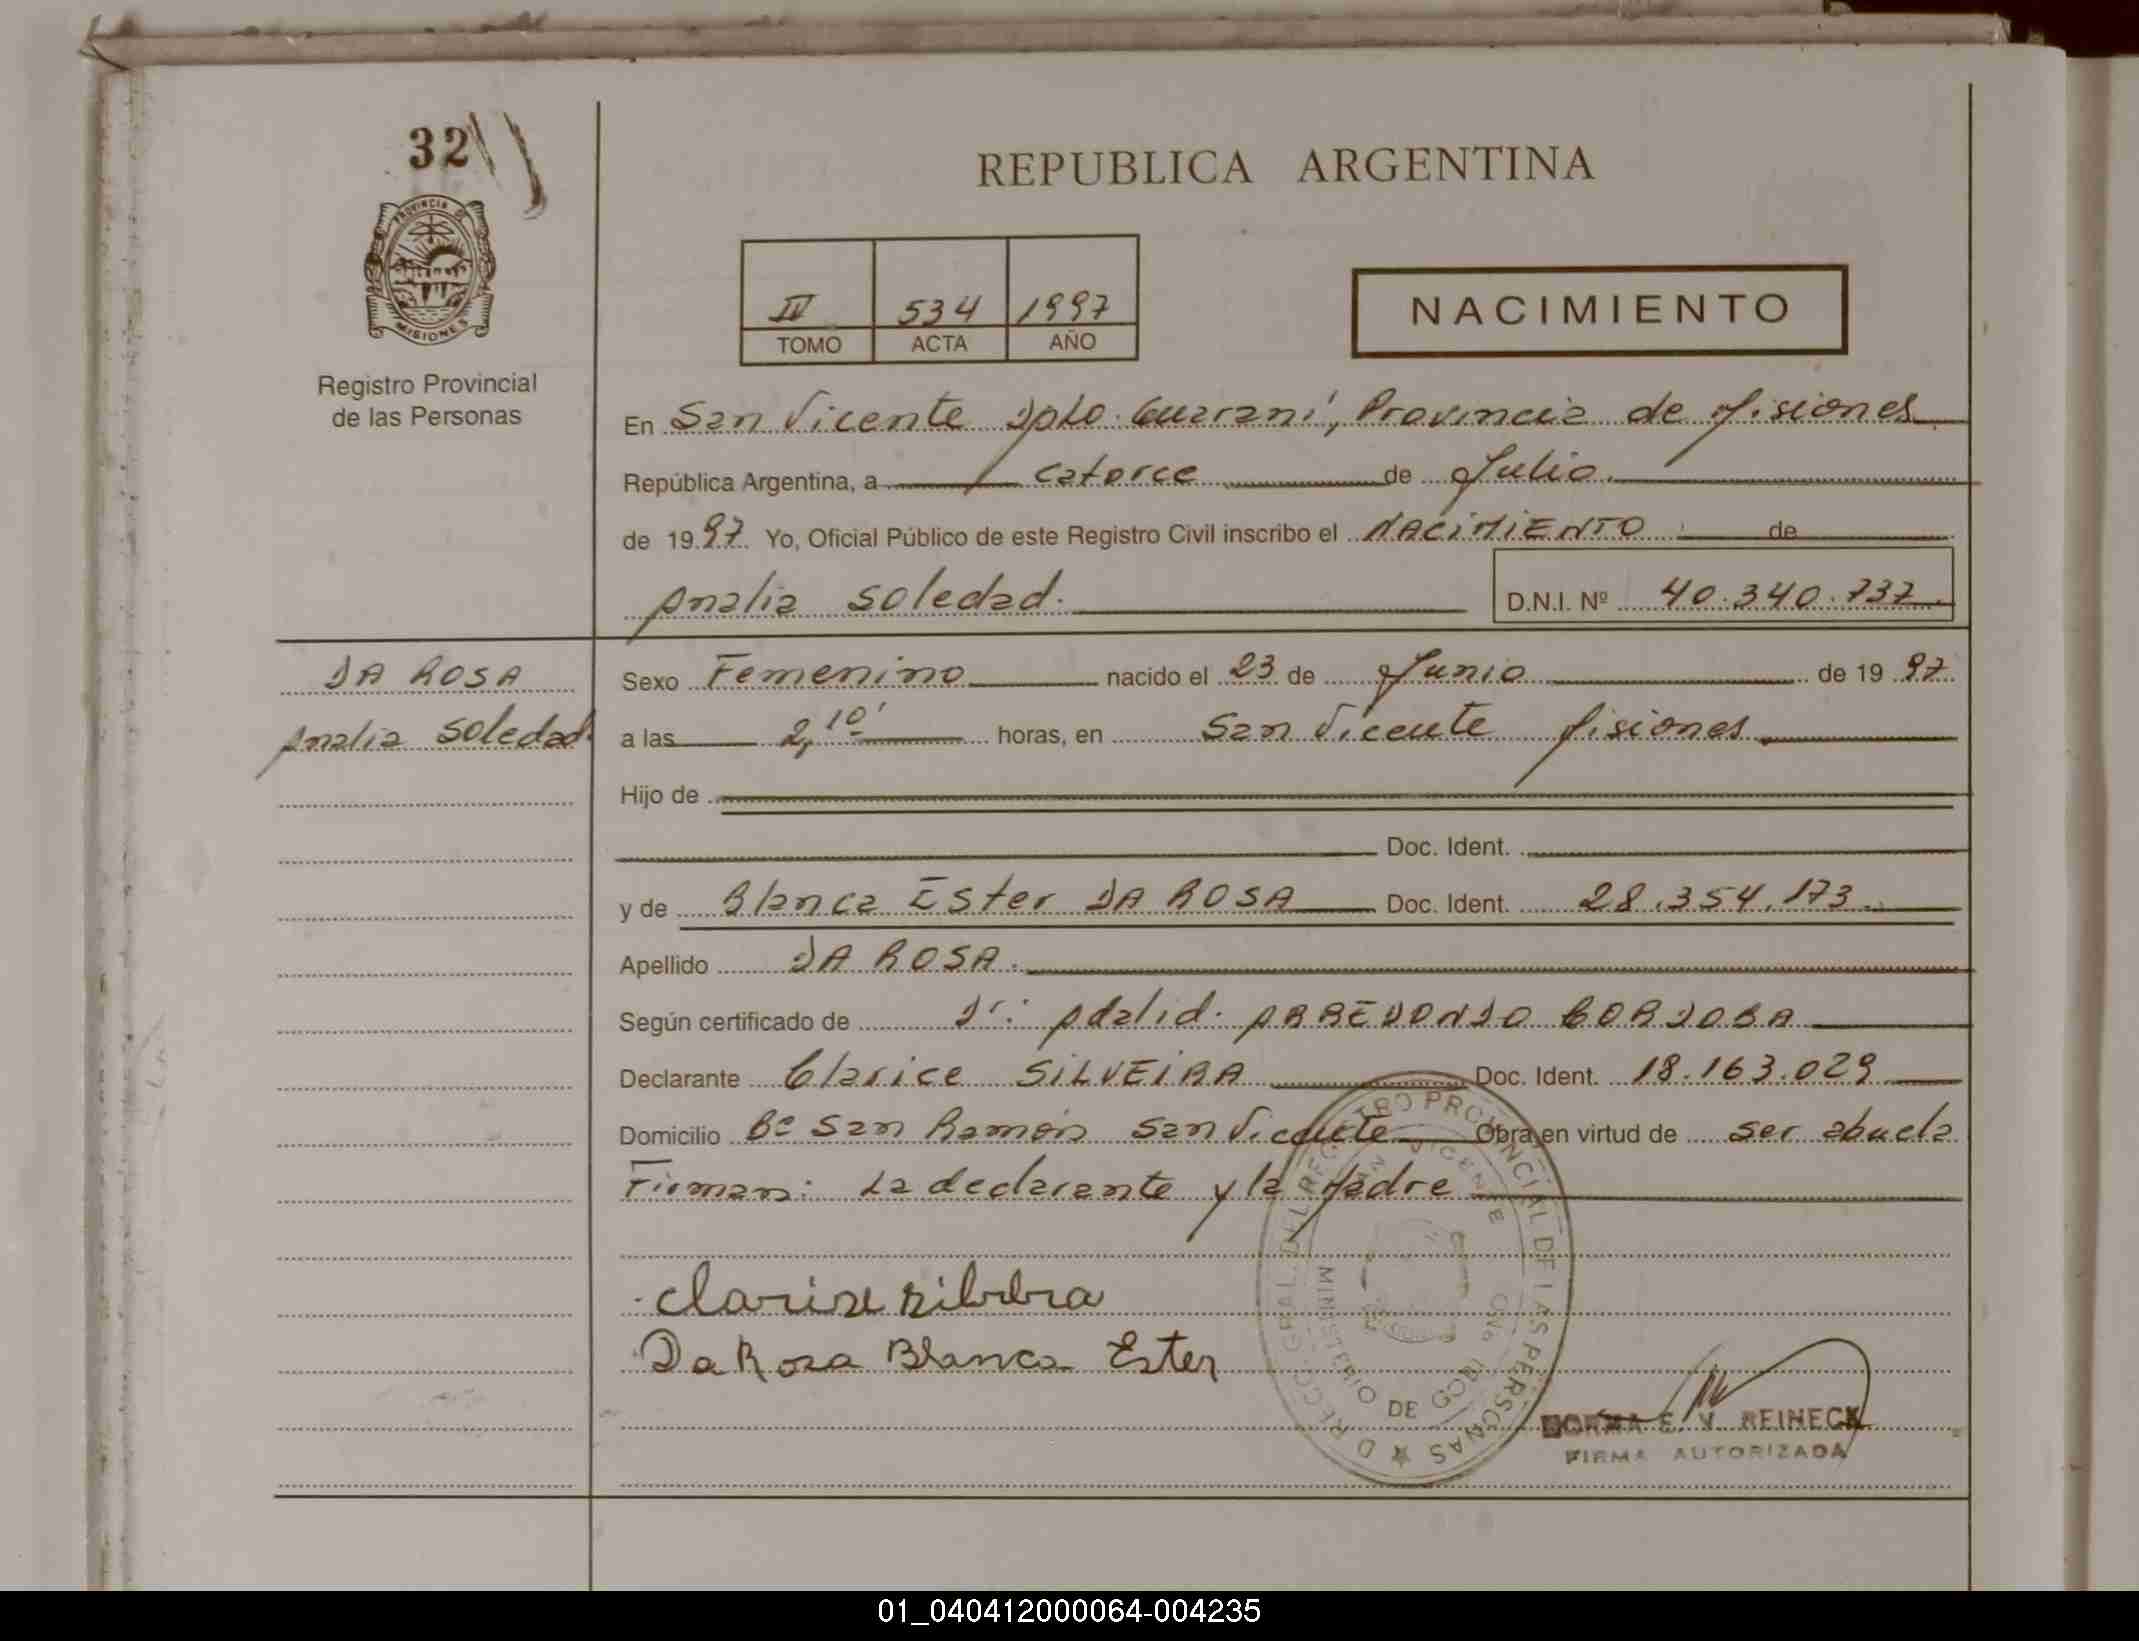 32
PROVINCIA DE
MISIONES
Registro Provincial
de las Personas
REPUBLICA ARGENTINA
IV 534 1997
TOMO ACTA AÑO
NACIMIENTO
En San Vicente Dpto. Guaraní, Provincia de Misiones
República Argentina, a catorce de Julio.
de 1997. Yo, Oficial Público de este Registro Civil inscribo el NACiMiENTO de
Analia Soledad. D.N.I. Nº 40.340.737.
DA ROSA
Analia Soledad.
Sexo Femenino nacido el 23 de Junio de 1997.
a las 2,10' horas, en San Vicente Misiones.
Hijo de
Doc. Ident.
y de Blanca Ester DA ROSA Doc. Ident. 28.354.173.
Apellido DA ROSA.
Según certificado de Dr: Adalid. ARREDONDO CORDOBA
Declarante Clarice SiLVEiRA Doc. Ident. 18.163.029
Domicilio Bº San Ramón San Vicente Obra en virtud de ser abuela
Firman: La declarante y la Madre
Da Rosa Blanca Ester
REGISTRO PROVINCIAL DE LAS PERSONAS
SAN VICENTE
MINISTERIO DE
E. V. REINECK
FIRMA AUTORIZADA
01_040412000064-004235